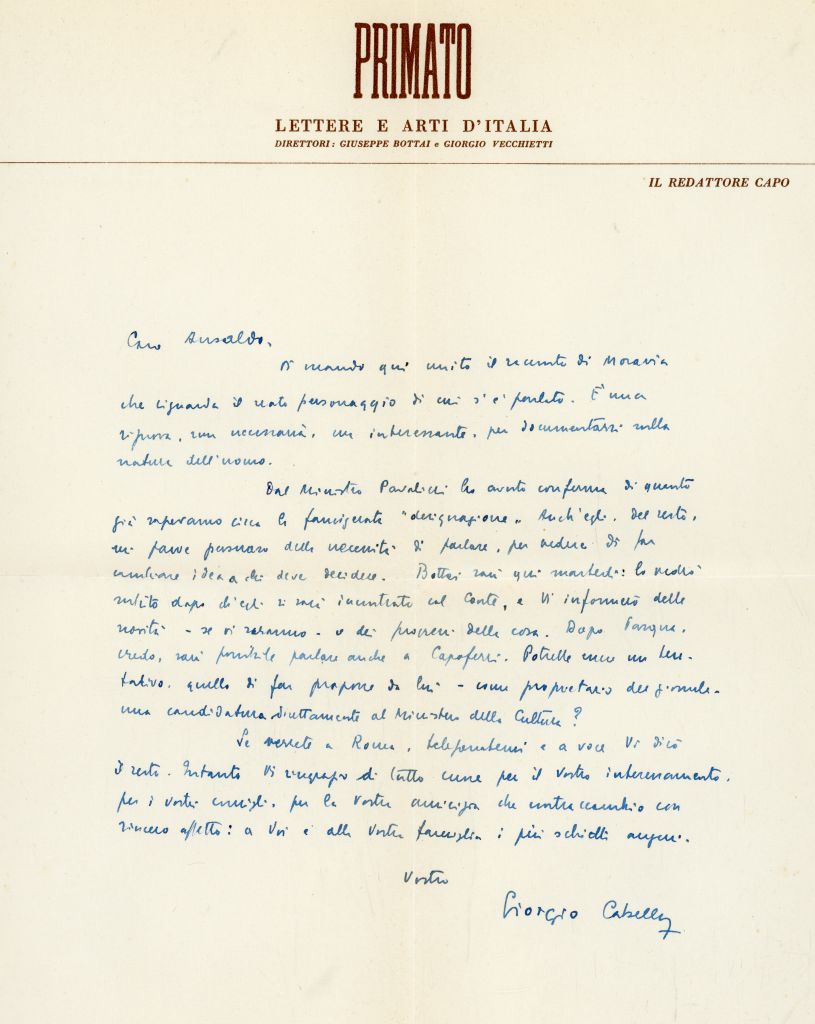 PRIMATO
LETTERE E ARTI D'ITALIA
DIRETTORI: GIUSEPPE BOTTAI e GIORGIO VECCHIETTI
IL REDATTORE CAPO
Caro Ansaldo,
Vi mando qui unito il racconto di Moravia
che riguarda il noto personaggio di cui s'è parlato. È una
riprova, non necessaria, ma interessante, per documentarsi sulla
natura dell'uomo.
Dal Ministro Pavolini ho avuto conferma di quanto
già sapevamo circa la famigerata "designazione". Anch'egli, del resto,
mi parve persuaso della necessità di parlare, per vedere di far
cambiare idea a chi deve decidere. Bottai sarà qui martedì: lo vedrò
subito dopo ch'egli si sarà incontrato col Conte, e Vi informerò delle
novità - se vi saranno - o dei progressi della cosa. Dopo Pasqua,
credo, sarà possibile parlare anche a Capoferri. Potrebbe essere un ten-
tativo, quello di far proporre da lui - come proprietario del giornale -
una candidatura direttamente al Ministero della Cultura?
Se verrete a Roma, telefonatemi e a voce Vi dirò
il resto. Intanto Vi ringrazio di tutto cuore per il Vostro interessamento,
per i Vostri consigli, per la Vostra amicizia che contraccambio con
sincero affetto: a Voi e alla Vostra famiglia i più schietti auguri.
Vostro
Giorgio Cabella